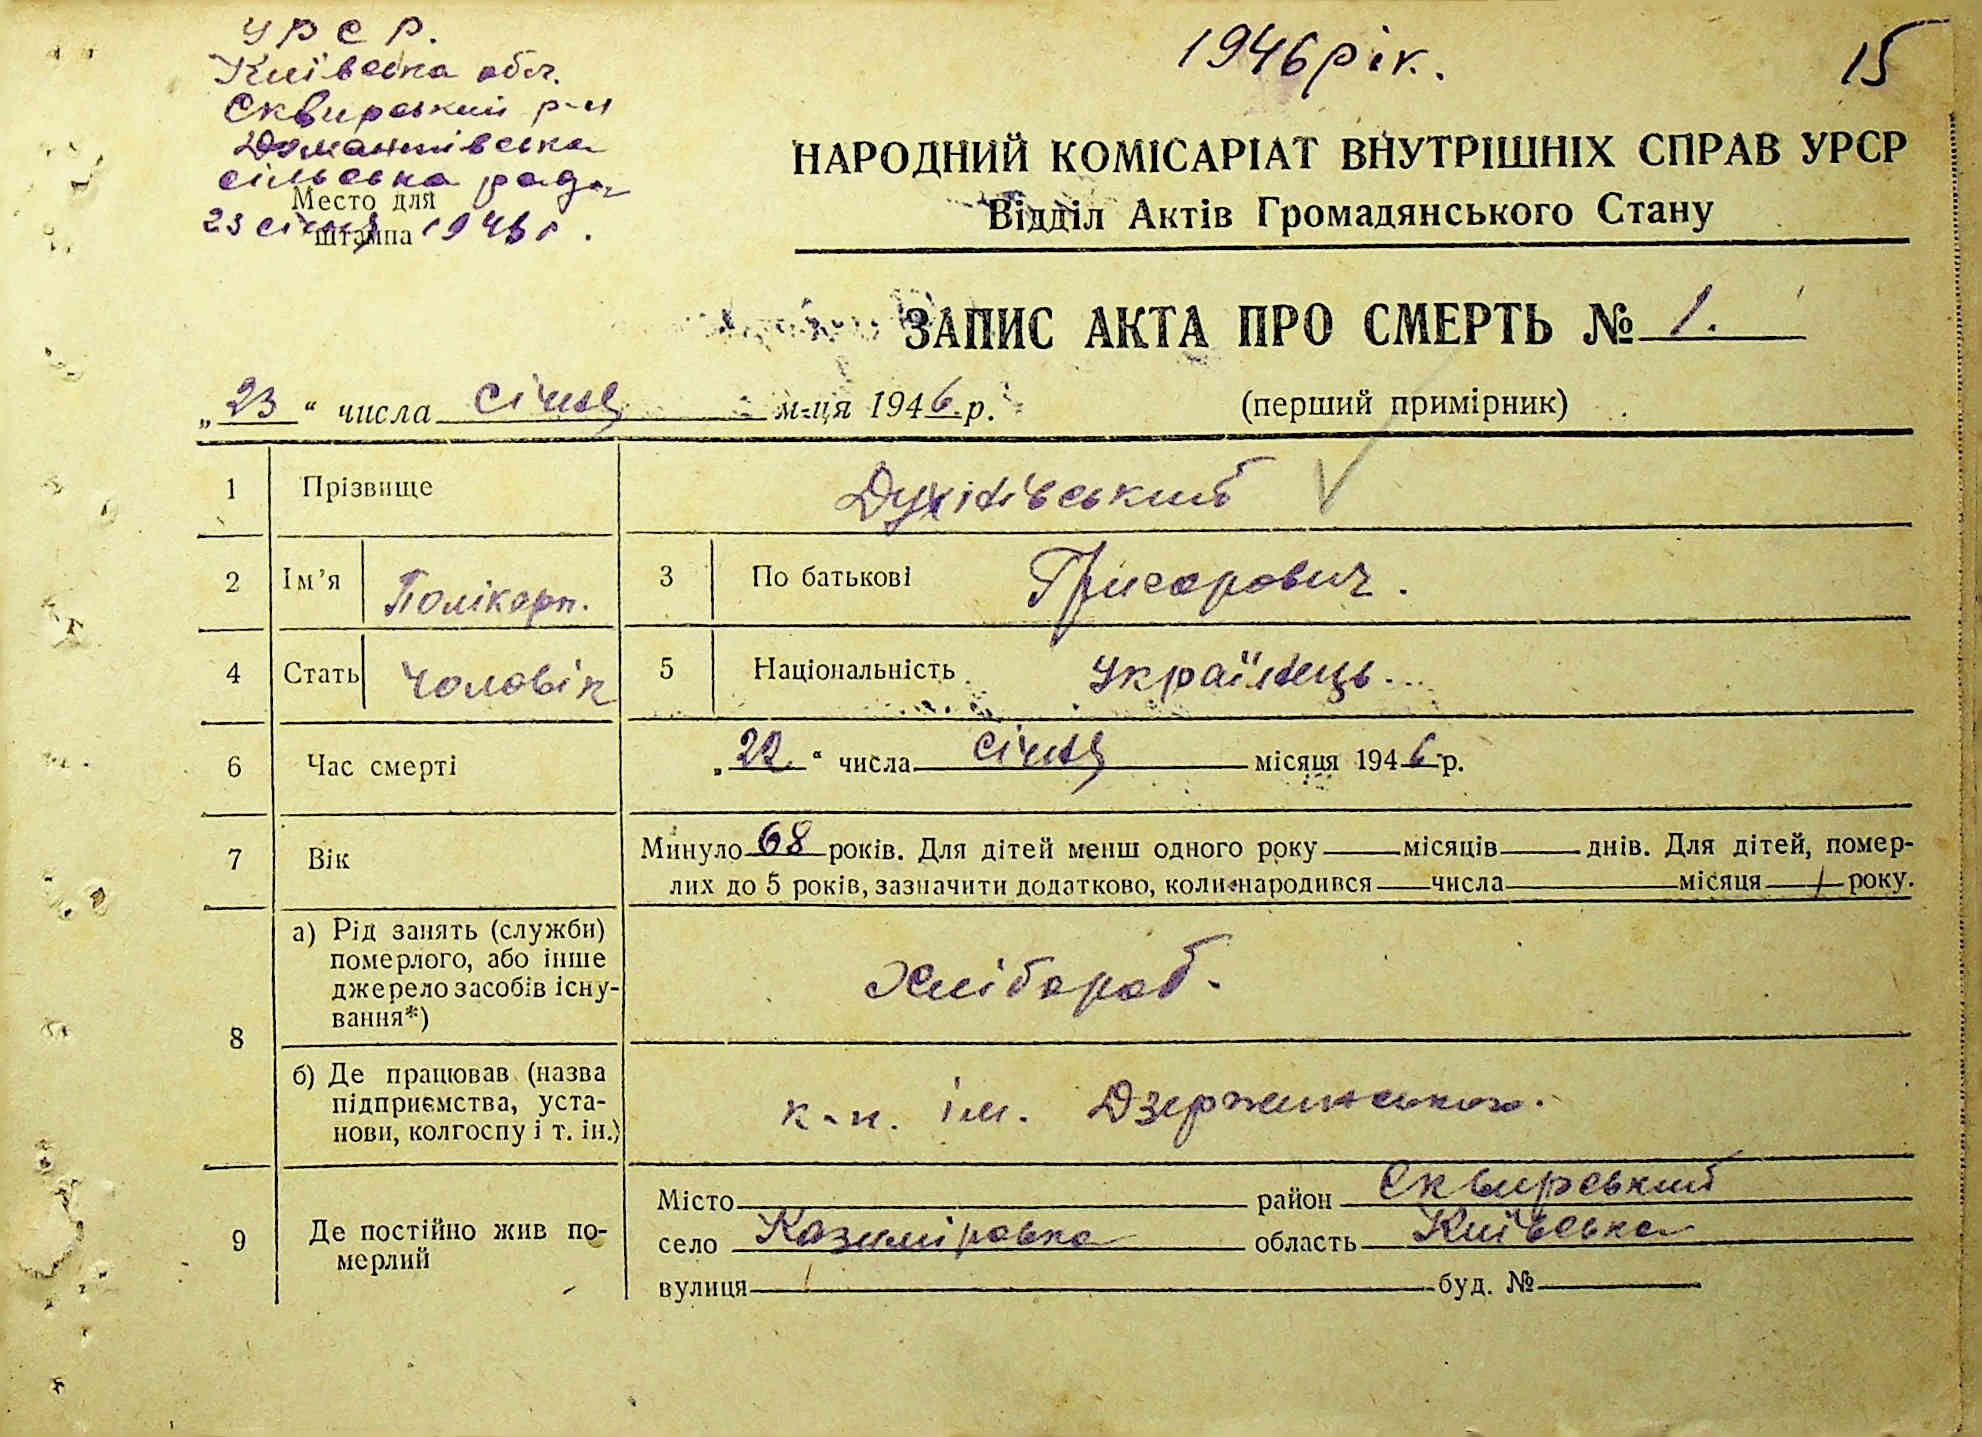 УРСР.
Київська обл.
Сквирський р-н
Домантівська
сільська рада
Место для
штампа
23 січня 1946 р.
1946 рік.
15
НАРОДНИЙ КОМІСАРІАТ ВНУТРІШНІХ СПРАВ УРСР
Відділ Актів Громадянського Стану
ЗАПИС АКТА ПРО СМЕРТЬ № 1.
„23“ числа січня м-ця 1946 р. (перший примірник)
1 Прізвище
2 Ім’я Полікарп. 3 По батькові Григорович.
4 Стать Чоловік 5 Національність Українець.
6 Час смерті „22“ числа січня місяця 1946 р.
7 Вік Минуло 68 років. Для дітей менш одного року місяців днів. Для дітей, помер-
лих до 5 років, зазначити додатково, коли народився числа місяця року.
8 а) Рід занять (служби)
померлого, або інше
джерело засобів існу-
вання*)
Хлібороб.
б) Де працював (назва
підприємства, уста-
нови, колгоспу і т. ін.)
к-п. ім. Дзержинського.
9 Де постійно жив по-
мерлий
Місто район Сквирський
село Казиміровка область Київська
вулиця буд. №